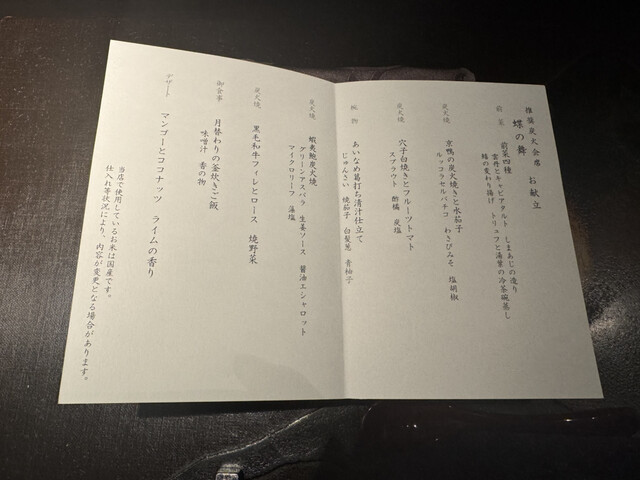 推奨炭火会席
蝶の舞 お献立
前菜
前菜四種
雲丹とキャビアタルト しまあじの造り
鱚の変わり揚げ トリュフと湯葉の冷茶碗蒸し
炭火焼
京鴨の炭火焼きと水茄子
ルッコラセルバチコ わさびみそ 塩胡椒
炭火焼
穴子白焼きとフルーツトマト
スプラウト 酢橘 炭塩
椀物
あいなめ葛打ち清汁仕立て
じゅんさい 焼茄子 白髪葱 青柚子
炭火焼
蝦夷鮑炭火焼
グリーンアスパラ 生姜ソース 醤油エシャロット
マイクロリーフ 藻塩
炭火焼
黒毛和牛フィレとロース 焼野菜
御食事
月替わりの釜炊きご飯
味噌汁 香の物
デザート
マンゴーとココナッツ ライムの香り
当店で使用しているお米は国産です。
仕入れ等状況により、内容が変更となる場合があります。